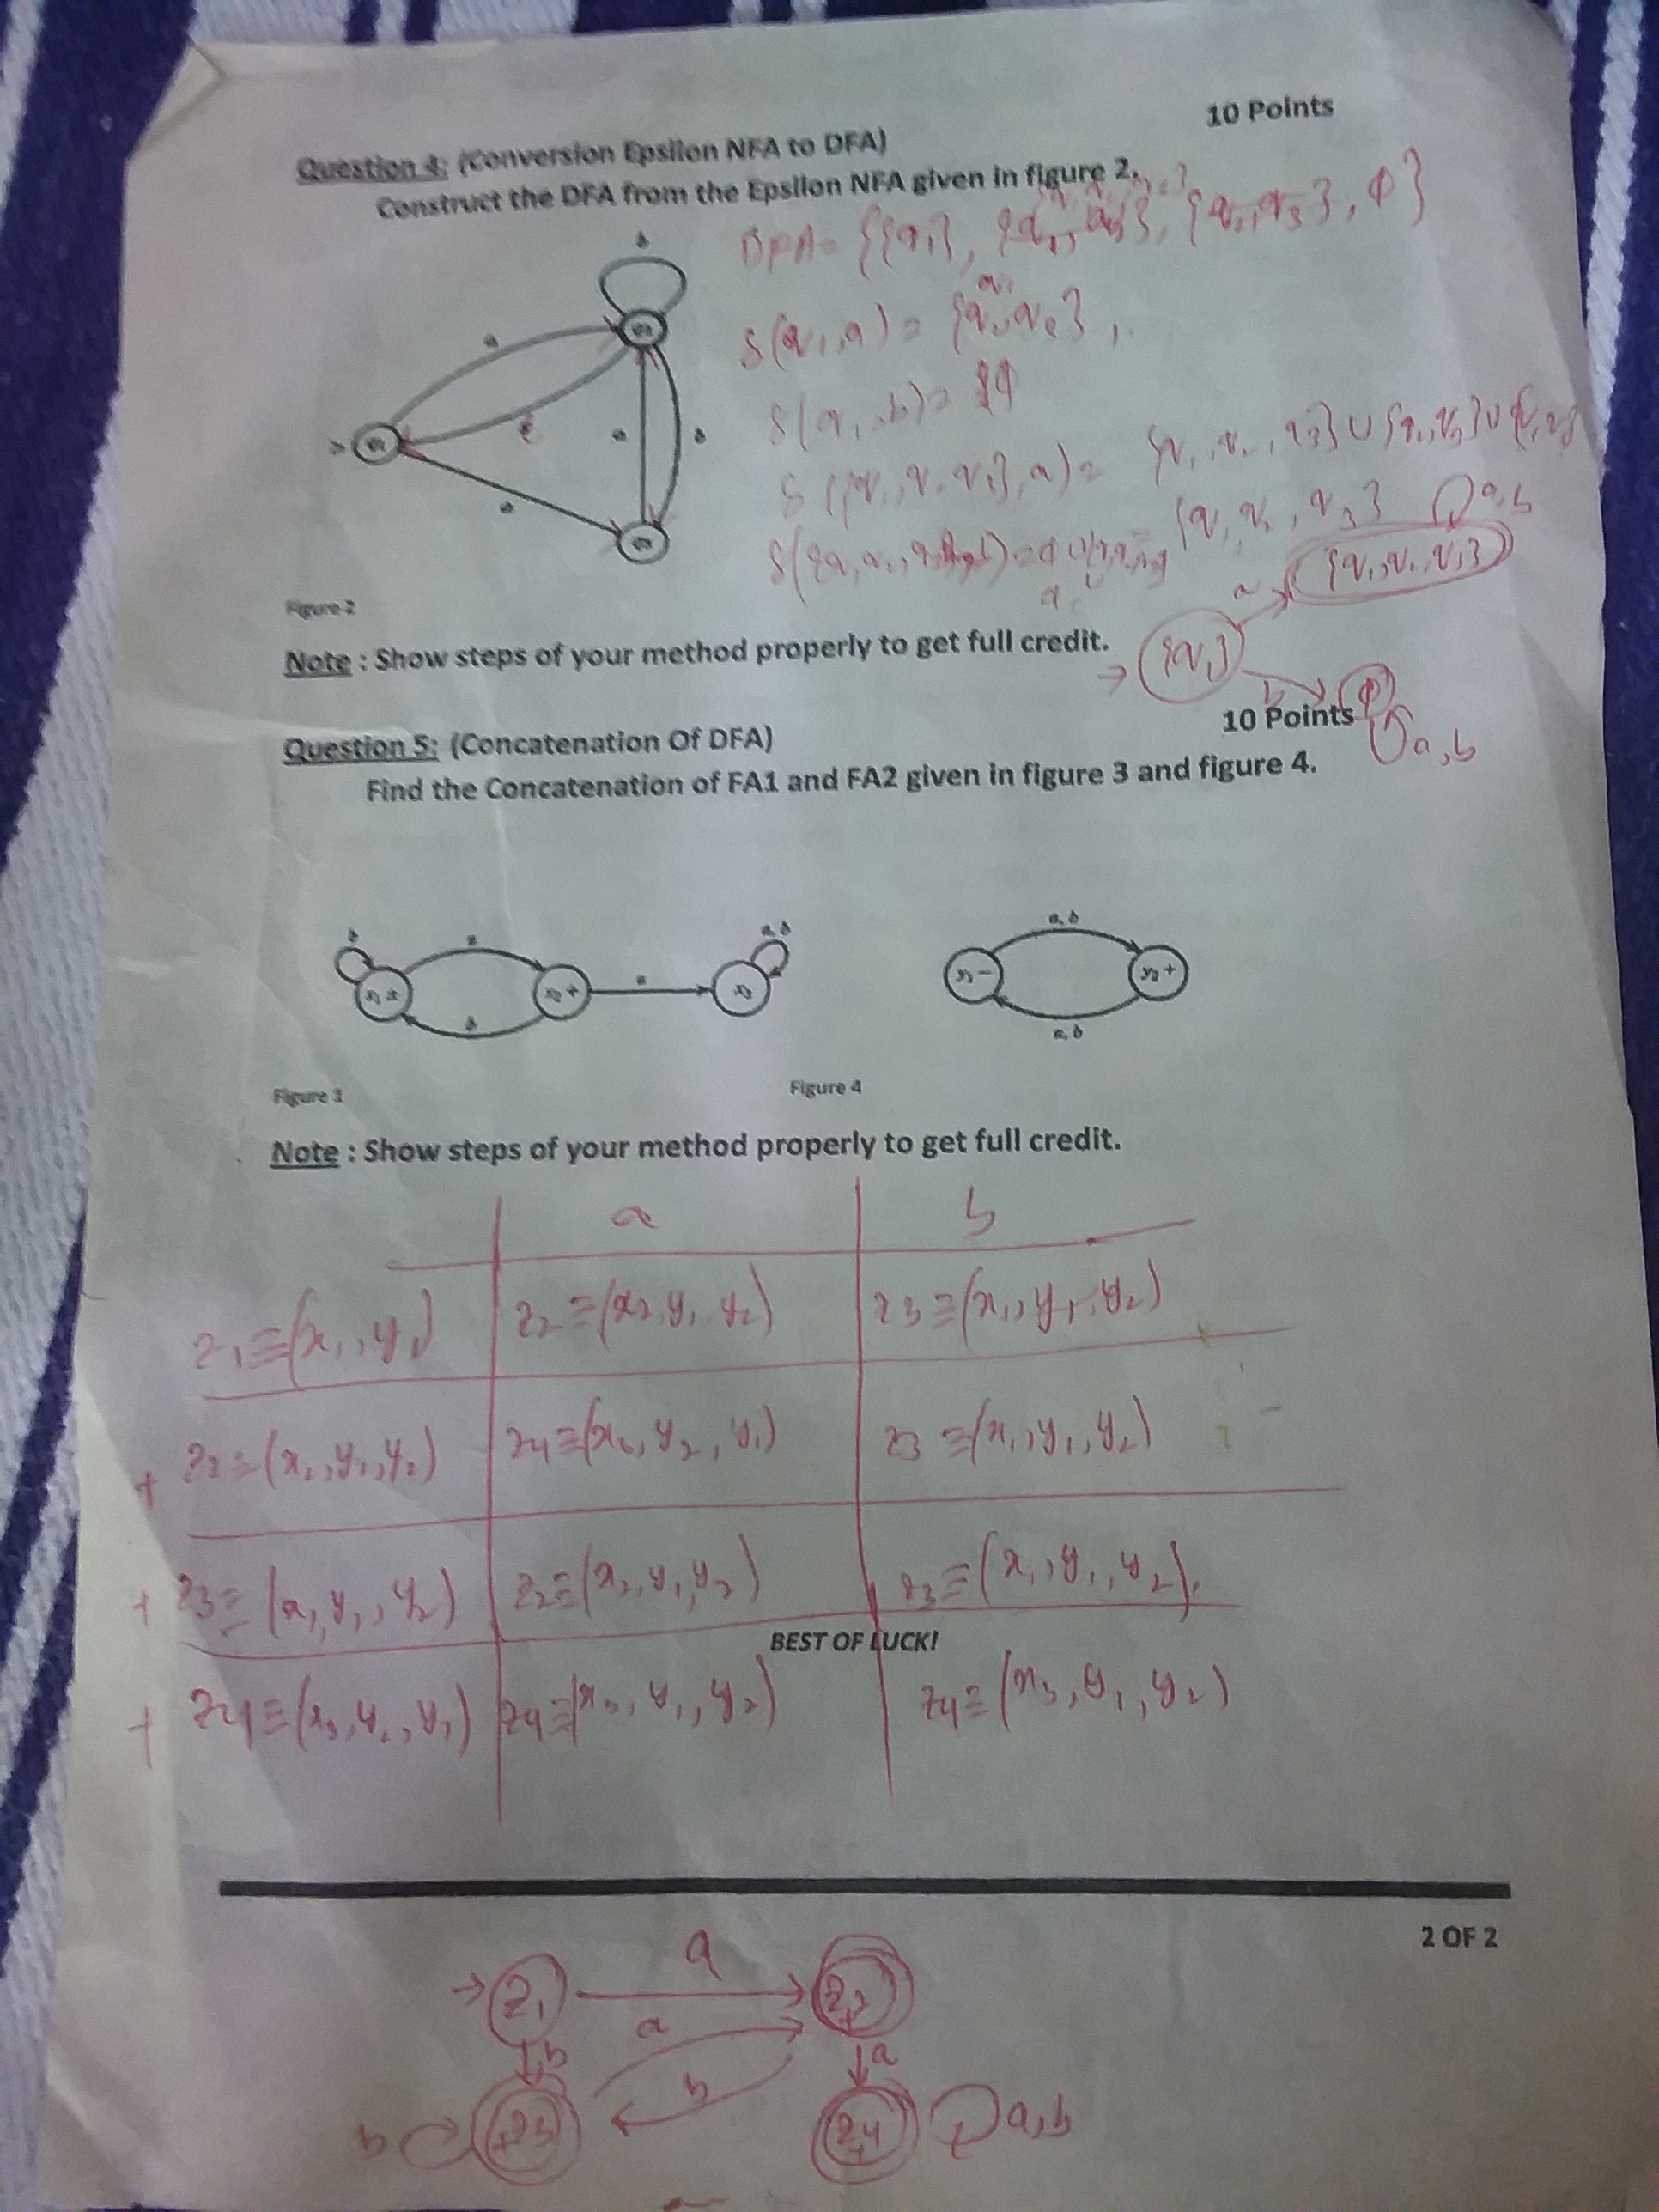 10 Points
Question 4: (Conversion Epsilon NFA to DFA)
Construct the DFA from the Epsilon NFA given in figure 2.
DFA = {{q1}, {q1, q2, q3}, ϕ}
b
a
δ(q1,a) =
δ(q1,b) = ϕ
ε
a
b
a
δ({q1,q2,q3},a) = {q1,q2,q3} ∪
{q1,q2,q3}
a,b
{q1,q2,q3}
a
Figure 2
{q1}
b
ϕ
a,b
Note : Show steps of your method properly to get full credit.
10 Points
Question 5: (Concatenation Of DFA)
Find the Concatenation of FA1 and FA2 given in figure 3 and figure 4.
b a a, b a, b
x1 ± x2 + a x3 y1 - y2 +
b a, b
Figure 3 Figure 4
Note : Show steps of your method properly to get full credit.
a b
z1≡(x1,y1) z2≡(x2,y1,y2) z3≡(x1,y1,y2)
+ z2≡(x2,y1,y2) z4≡(x3,y2,y1) z3≡(x1,y1,y2)
+ z3≡(x1,y1,y2) z2≡(x2,y1,y2) z3≡(x1,y1,y2)
BEST OF LUCK!
+ z4≡(x3,y2,y1) z4≡(x3,y1,y2) z4≡(x3,y1,y2)
2 OF 2
z1 a z2+
b a b a
b +z3 z4+ a,b